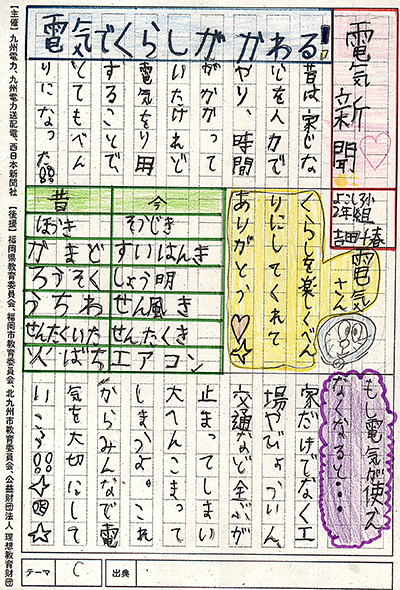 電気新聞
よこしろ小
2年 組
吉田千春
電気でくらしがかわる
昔は家じな
どを人力で
やり、時間
がかかって
いたけれど
電気をり用
することで、
とてもべん
りになった
電気さん
くらしを楽くべん
りにしてくれて
ありがとう
昔 今
ほうき そうじき
かまど すいはんき
ろうそく しょう明
うちわ せん風き
せんたくいた せんたくき
火ばち エアコン
もし電気が使え
なくなると・・・
家だけでなく工
場やびょういん、
交通など全ぶが
止まってしまい
大へんこまって
しまうよ。これ
からみんなで電
気を大切にして
いこう
テーマ C 出典
【主催】九州電力、九州電力送配電、西日本新聞社 【後援】福岡県教育委員会、福岡市教育委員会、北九州市教育委員会、公益財団法人 理想教育財団